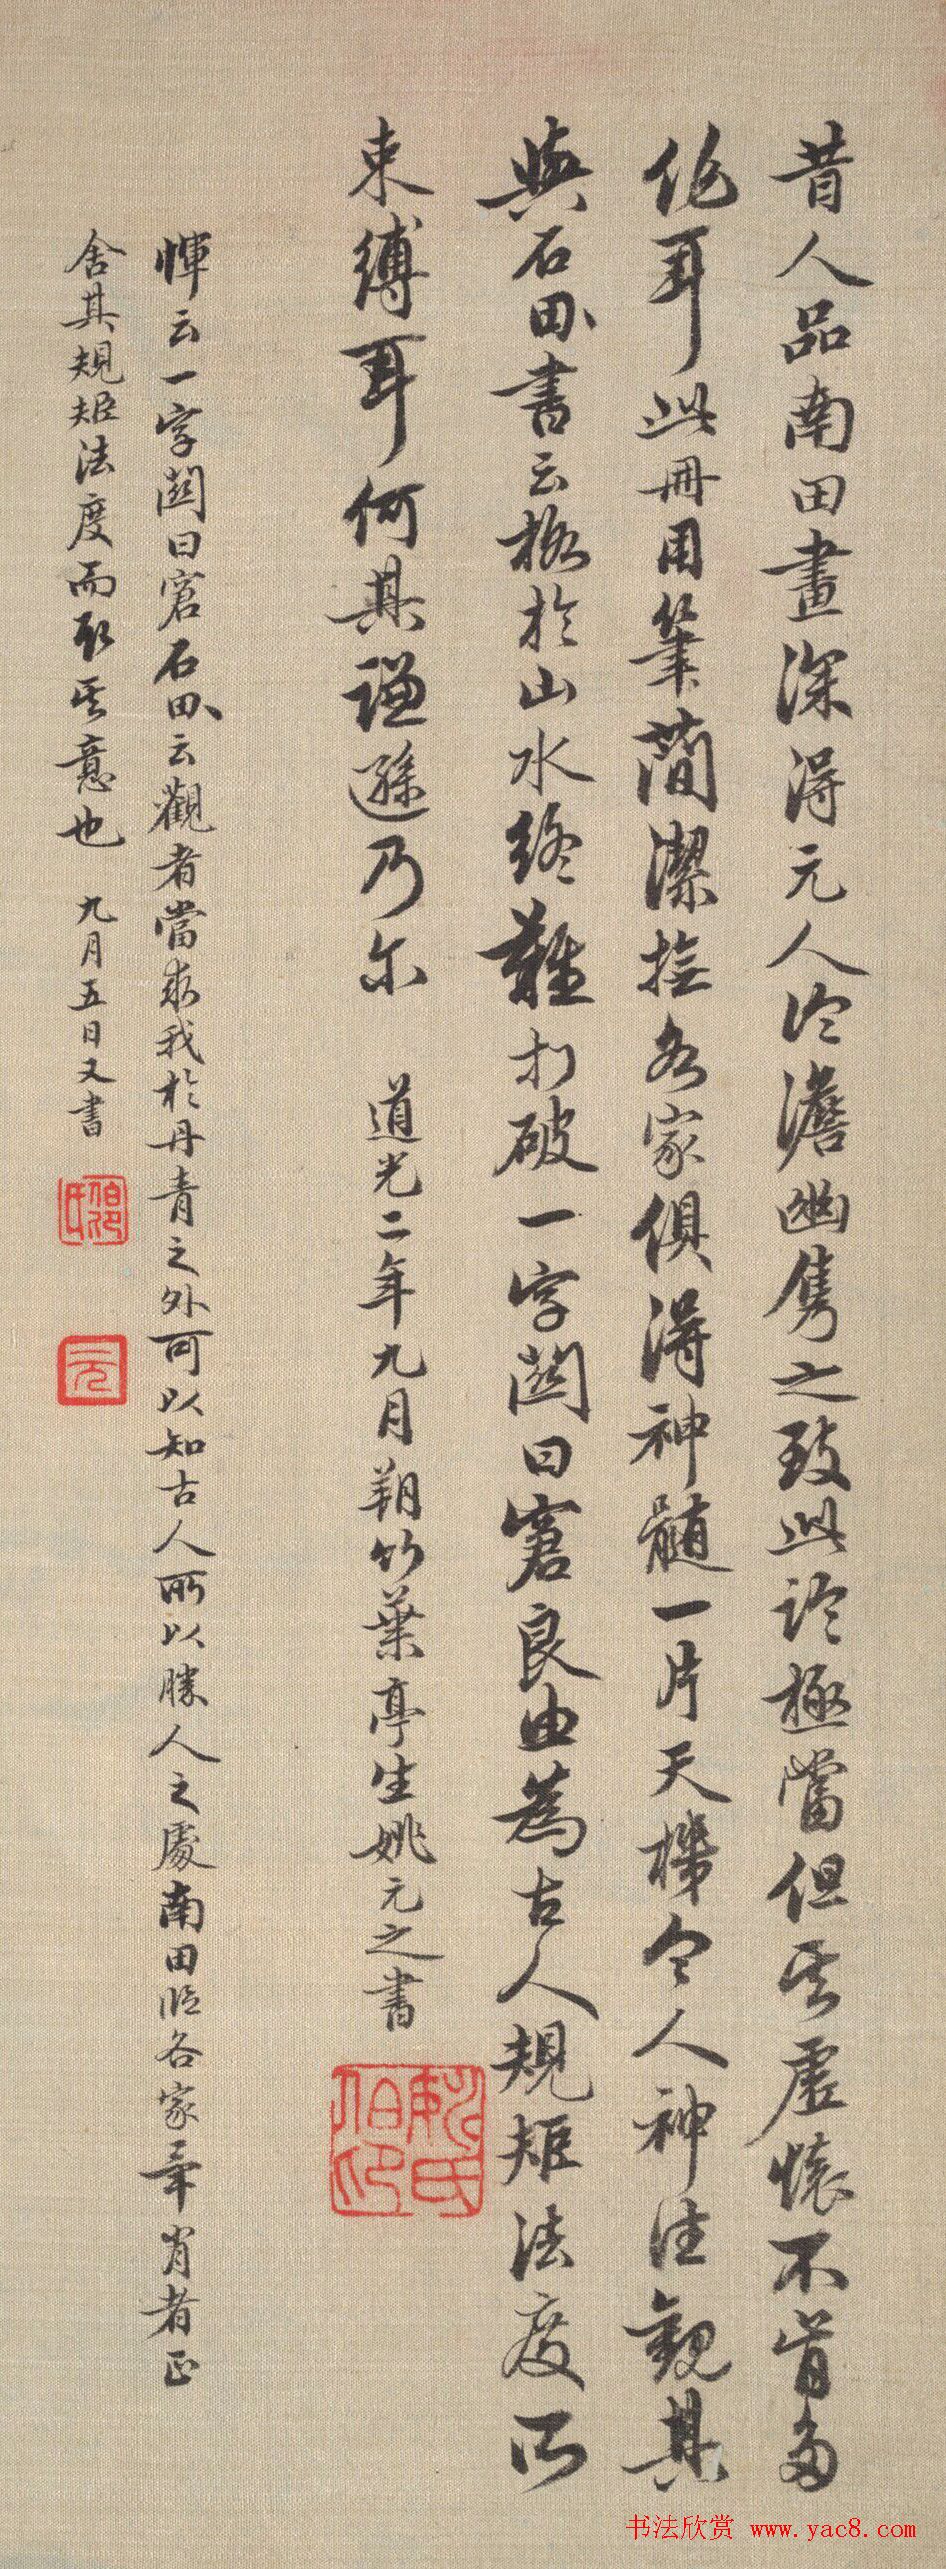 昔人品南田畫深得元人冷澹幽雋之致此論極當但其虛懷不肯多
作耳此冊用筆簡潔撫各家俱得神髓一片天機令人神往觀其
與石田書云格於山水終難打破一字關曰窘良由為古人規矩法度所
束縛耳何其謙遜乃尔 道光二年九月朔竹葉亭生姚元之書
惲云一字關曰窘石田云觀者當求我於丹青之外可以知古人所以勝人之處南田臨各家畢肖者正
舍其規矩法度而取其意也 九月五日又書
伯卬氏
元
姚氏伯卬
书法欣赏 www.yac8.com